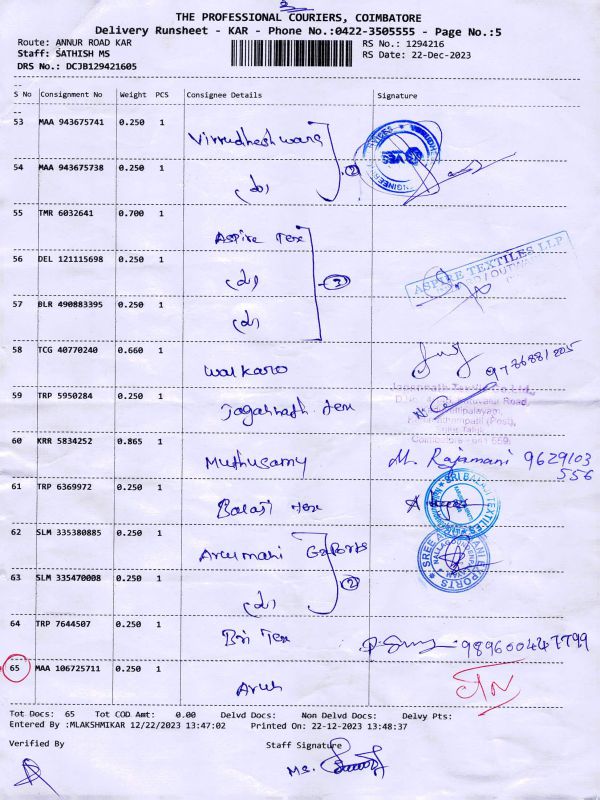 THE PROFESSIONAL COURIERS, COIMBATORE
Delivery Runsheet - KAR - Phone No.:0422-3505555 - Page No.:5
Route: ANNUR ROAD KAR RS No.: 1294216
Staff: SATHISH MS RS Date: 22-Dec-2023
DRS No.: DCJB129421605
S No Consignment No Weight PCS Consignee Details Signature
53 MAA 943675741 0.250 1
54 MAA 943675738 0.250 1 (do)
55 TMR 6032641 0.700 1 Aspire Tex
56 DEL 121115698 0.250 1 (do)
ASPIRE TEXTILES LLP
57 BLR 490883395 0.250 1 (do)
58 TCG 40770240 0.660 1 Walkaro
59 TRP 5950284 0.250 1 Jagannath. Tex
60 KRR 5834252 0.865 1 Muthusamy M. Rajamani 9629103
556
61 TRP 6369972 0.250 1 Balaji Tex
SRI BALAJI TEXTILES
62 SLM 335380885 0.250 1 Arulmani Exports
63 SLM 335470008 0.250 1 (do)
64 TRP 7644507 0.250 1
65 MAA 106725711 0.250 1 Arul
Tot Docs: 65 Tot COD Amt: 0.00 Delvd Docs: Non Delvd Docs: Delvy Pts:
Entered By :MLAKSHMIKAR 12/22/2023 13:47:02 Printed On: 22-12-2023 13:48:37
Verified By Staff Signature